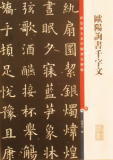 歐陽詢書千字文
扇圓絜銀燭煒煌
眠夕寐藍笋象床
弦歌酒讌接杯舉觴
手頓足悅豫且康